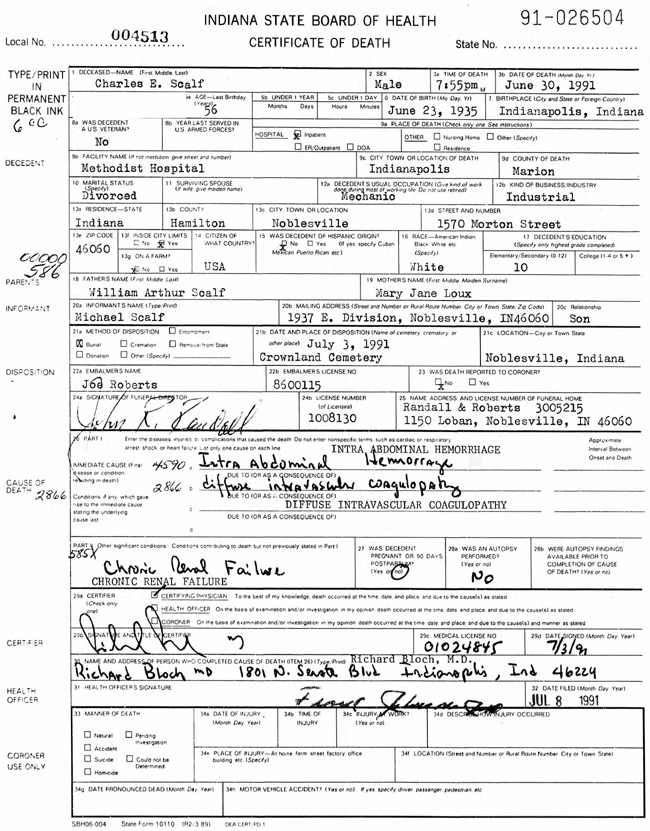 INDIANA STATE BOARD OF HEALTH 91-026504
Local No. 004513 CERTIFICATE OF DEATH State No.
TYPE/PRINT IN PERMANENT BLACK INK
1 DECEASED—NAME (First Middle Last) 2 SEX 3a TIME OF DEATH 3b DATE OF DEATH (Month Day Yr)
Charles E. Scalf Male 7:55pm M June 30, 1991
5a AGE—Last Birthday (Years) 5b UNDER 1 YEAR 5c UNDER 1 DAY 6 DATE OF BIRTH (Mo Day Yr) 7 BIRTHPLACE (City and State or Foreign Country)
56 Months Days Hours Minutes June 23, 1935 Indianapolis, Indiana
8a WAS DECEDENT A U.S. VETERAN? 8b YEAR LAST SERVED IN US ARMED FORCES? 9a PLACE OF DEATH (Check only one See instructions)
No HOSPITAL Inpatient ER/Outpatient DOA OTHER Nursing Home Other (Specify) Residence
DECEDENT
9b FACILITY NAME (If not institution, give street and number) 9c CITY TOWN OR LOCATION OF DEATH 9d COUNTY OF DEATH
Methodist Hospital Indianapolis Marion
10 MARITAL STATUS (Specify) 11 SURVIVING SPOUSE (If wife give maiden name) 12a DECEDENT'S USUAL OCCUPATION (Give kind of work done during most of working life Do not use retired) 12b KIND OF BUSINESS/INDUSTRY
Divorced Mechanic Industrial
13a RESIDENCE—STATE 13b COUNTY 13c CITY TOWN OR LOCATION 13d STREET AND NUMBER
Indiana Hamilton Noblesville 1570 Morton Street
13e ZIP CODE 13f INSIDE CITY LIMITS No Yes 14 CITIZEN OF WHAT COUNTRY? 15 WAS DECEDENT OF HISPANIC ORIGIN? No Yes (If yes, specify Cuban Mexican Puerto Rican etc) 16 RACE—American Indian Black White etc (Specify) 17 DECEDENT'S EDUCATION (Specify only highest grade completed)
46060 13g ON A FARM? No Yes USA White Elementary/Secondary (0-12) 10 College (1-4 or 5+)
00000
586
PARENTS
18 FATHER'S NAME (First Middle Last) 19 MOTHER'S NAME (First Middle Maiden Surname)
William Arthur Scalf Mary Jane Loux
INFORMANT
20a INFORMANT'S NAME (Type/Print) 20b MAILING ADDRESS (Street and Number or Rural Route Number City or Town State Zip Code) 20c Relationship
Michael Scalf 1937 E. Division, Noblesville, IN46060 Son
21a METHOD OF DISPOSITION Entombment 21b DATE AND PLACE OF DISPOSITION (Name of cemetery, crematory, or other place) 21c LOCATION—City or Town State
Burial Cremation Removal from State July 3, 1991
Donation Other (Specify) Crownland Cemetery Noblesville, Indiana
DISPOSITION
22a EMBALMER'S NAME 22b EMBALMER'S LICENSE NO 23 WAS DEATH REPORTED TO CORONER?
Joe Roberts 8600115 No Yes
24a SIGNATURE OF FUNERAL DIRECTOR 24b LICENSE NUMBER (of Licensee) 25 NAME ADDRESS AND LICENSE NUMBER OF FUNERAL HOME
John R. Randall 1008130 Randall & Roberts 3005215
1150 Loban, Noblesville, IN 46060
26 PART I Enter the diseases, injuries or complications that caused the death Do not enter nonspecific terms, such as cardiac or respiratory arrest shock or heart failure List only one cause on each line Approximate Interval Between Onset and Death
INTRA ABDOMINAL HEMORRHAGE
IMMEDIATE CAUSE (Final disease or condition resulting in death) 4590 Intra Abdominal Hemorrage
DUE TO (OR AS A CONSEQUENCE OF)
2866 b diffuse intravascular coagulopathy
CAUSE OF DEATH 2866
Conditions if any which gave rise to the immediate cause stating the underlying cause last
DUE TO (OR AS A CONSEQUENCE OF)
DIFFUSE INTRAVASCULAR COAGULOPATHY
DUE TO (OR AS A CONSEQUENCE OF)
d
PART II Other significant conditions - Conditions contributing to death but not previously stated in Part I 27 WAS DECEDENT PREGNANT OR 90 DAYS POSTPARTUM? (Yes or no) 28a WAS AN AUTOPSY PERFORMED? (Yes or no) 28b WERE AUTOPSY FINDINGS AVAILABLE PRIOR TO COMPLETION OF CAUSE OF DEATH? (Yes or no)
585X
Chronic Renal Failure No
CHRONIC RENAL FAILURE
29a CERTIFIER (Check only one) CERTIFYING PHYSICIAN To the best of my knowledge, death occurred at the time, date, and place, and due to the cause(s) as stated
HEALTH OFFICER On the basis of examination and/or investigation in my opinion death occurred at the time, date, and place, and due to the cause(s) as stated
CORONER On the basis of examination and/or investigation in my opinion death occurred at the time date, and place and due to the cause(s) and manner as stated
CERTIFIER
29b SIGNATURE AND TITLE OF CERTIFIER 29c MEDICAL LICENSE NO 29d DATE SIGNED (Month Day Year)
01024845 7/3/91
30 NAME AND ADDRESS OF PERSON WHO COMPLETED CAUSE OF DEATH (ITEM 26) (Type/Print) Richard Bloch, M.D.
Richard Bloch MD 1801 N. Senate Blvd Indianapolis, Ind 46224
HEALTH OFFICER
31 HEALTH OFFICER'S SIGNATURE 32 DATE FILED (Month Day Year)
JUL 8 1991
33 MANNER OF DEATH 34a DATE OF INJURY (Month Day Year) 34b TIME OF INJURY 34c INJURY AT WORK? (Yes or no) 34d DESCRIBE HOW INJURY OCCURRED
Natural Pending Investigation
Accident
Suicide Could not be Determined
Homicide
CORONER USE ONLY
34e PLACE OF INJURY—At home farm street factory, office building etc (Specify) 34f LOCATION (Street and Number or Rural Route Number City or Town State)
34g DATE PRONOUNCED DEAD (Month Day Year) 34h MOTOR VEHICLE ACCIDENT? (Yes or no) If yes specify driver passenger pedestrian etc
SBH06-004 State Form 10110 (R2/3-89) DEA CERT/PD 1